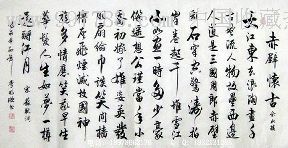 赤壁懷古
大江東去浪淘盡千
古風流人物故壘西邊
人道是三國周郎赤壁亂
石穿空驚濤拍
岸卷起千堆雪江
山如畫一時多少豪
傑遙想公瑾當年小
喬初嫁了雄姿英發
羽扇綸巾談笑間檣
櫓灰飛煙滅故國神
遊多情應笑我早生
華髮人生如夢一尊
還酹江月 宋蘇軾詞